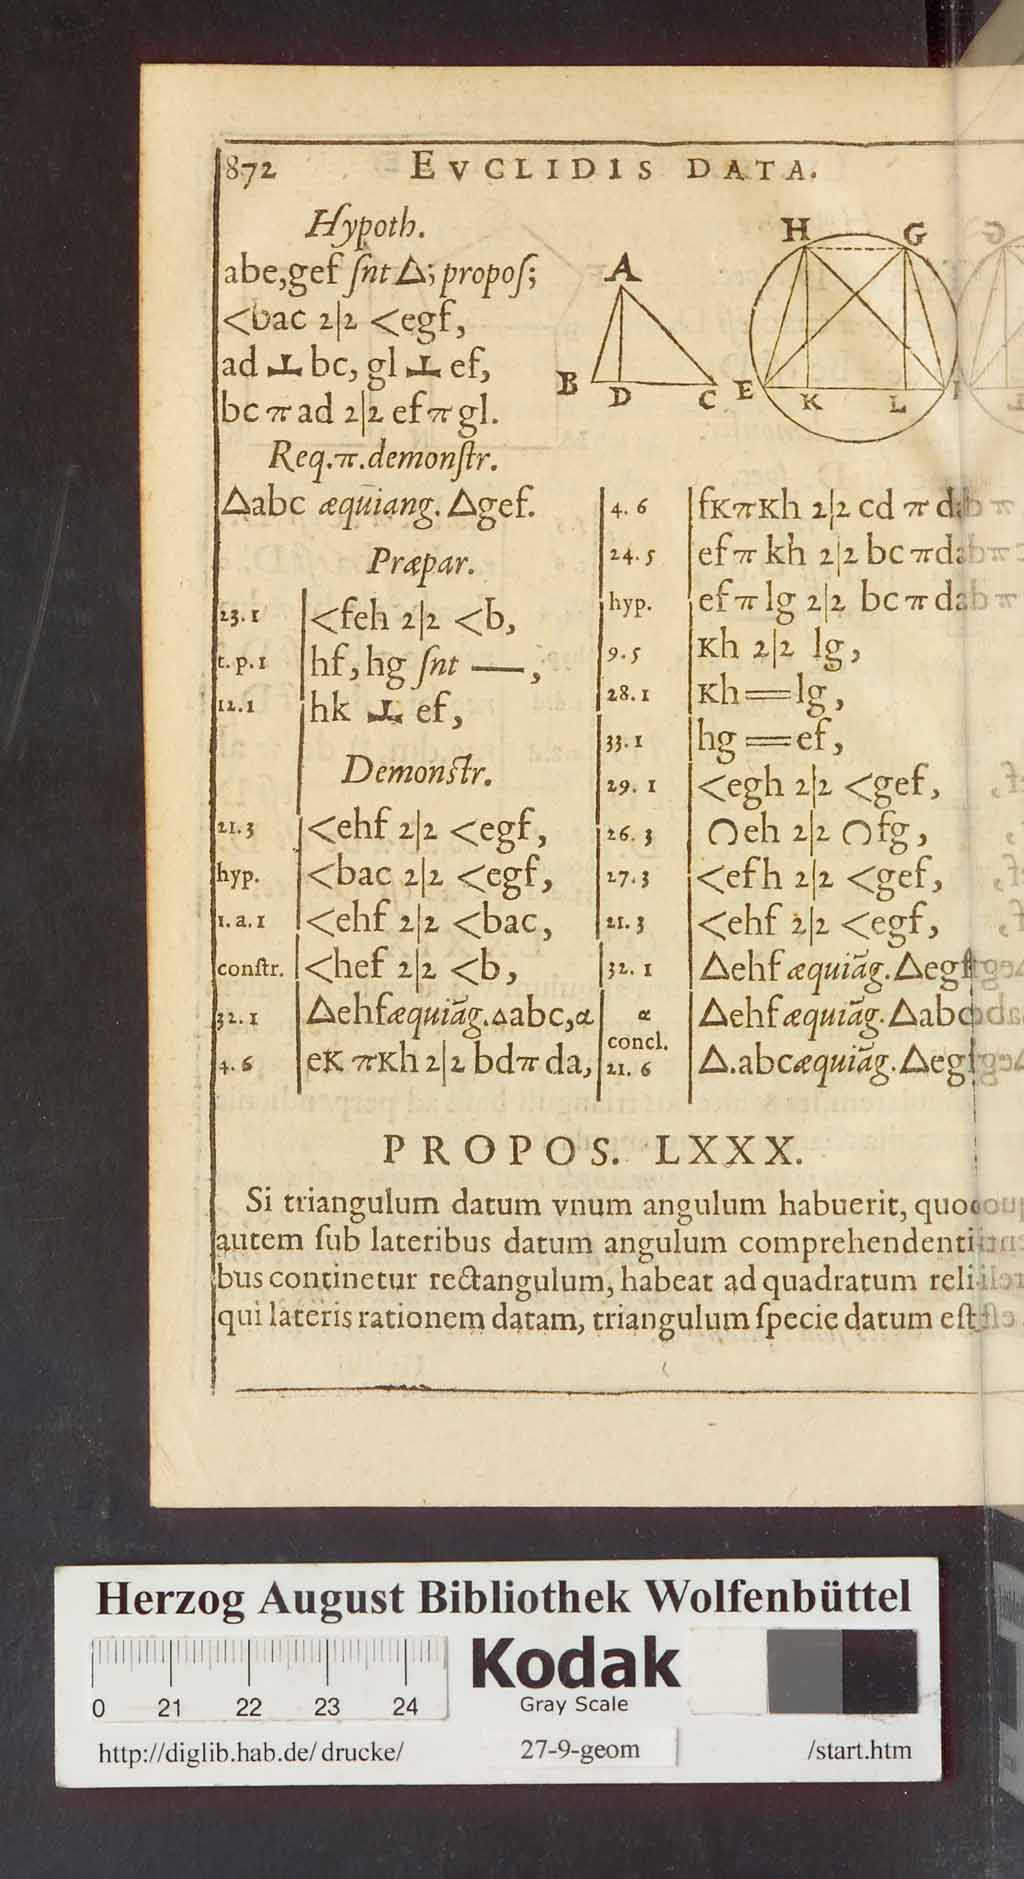 872 EVCLIDIS DATA.
Hypoth.
abe,gef ſnt △; propoſ;
<bac 2|2 <egf,
ad ⊥ bc, gl ⊥ ef,
bc π ad 2|2 ef π gl.
Req. π. demonſtr.
△abc æquiang. △gef.
Præpar.
23. 1 <feh 2|2 <b,
t. p. 1 hf, hg ſnt —,
12. 1 hk ⊥ ef,
Demonſtr.
21. 3 <ehf 2|2 <egf,
hyp. <bac 2|2 <egf,
1. a. 1 <ehf 2|2 <bac,
conſtr. <hef 2|2 <b,
32. 1 △ehf æquiãg. △abc, α
4. 6 eK π Kh 2|2 bd π da,
A
B D C
H G
E K L
4. 6 fK π Kh 2|2 cd π
24. 5 ef π kh 2|2 bc π
hyp. ef π lg 2|2 bc π
9. 5 Kh 2|2 lg,
28. 1 Kh = lg,
33. 1 hg = ef,
29. 1 <egh 2|2 <gef,
26. 3 ∩eh 2|2 ∩fg,
27. 3 <efh 2|2 <gef,
21. 3 <ehf 2|2 <egf,
32. 1 △ehf æquiãg. △egf
α △ehf æquiãg. △abc
concl.
21. 6 △.abc æquiãg. △egf
PROPOS. LXXX.
Si triangulum datum vnum angulum habuerit, quod
autem ſub lateribus datum angulum comprehendenti
bus continetur rectangulum, habeat ad quadratum reli
qui lateris rationem datam, triangulum ſpecie datum eſt
Herzog August Bibliothek Wolfenbüttel
0 21 22 23 24
Kodak
Gray Scale
http://diglib.hab.de/drucke/ 27-9-geom /start.htm